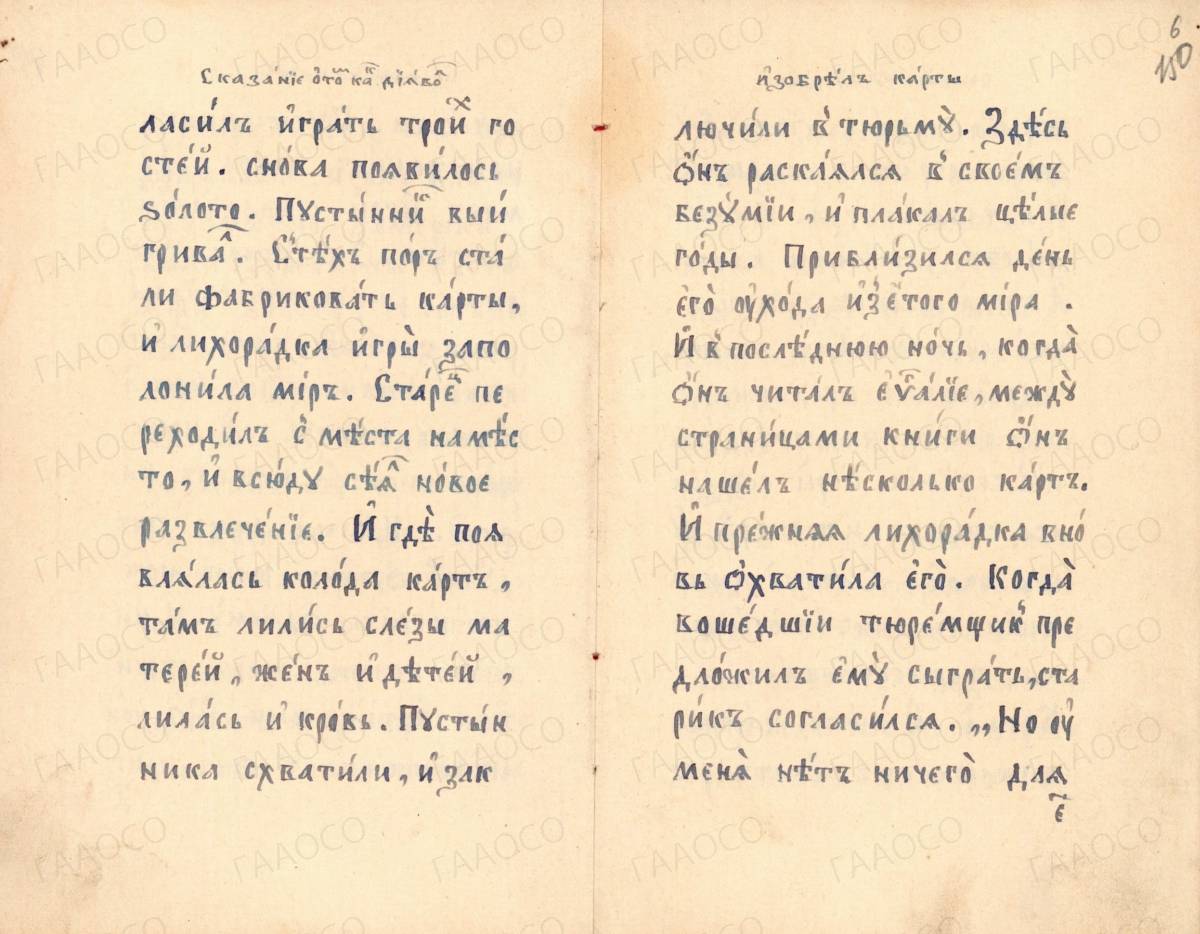 Сказа́нїе ѻ҆то́мъ ка́къ дїа́волъ
ласи́лъ и҆гра́ть трои́хъ го
сте́й. сно́ва появи́лось
ѕо́лото. Пꙋсты́нникъ выи́
грива́лъ. Стѣ́хъ по́ръ ста́
ли фабрикова́ть ка́рты,
и҆ лихора́дка и҆гры̀ запо
лони́ла мі́ръ. Ста́рецъ пе
реходи́лъ с̾ мѣ́ста намѣ́с
то, и҆ всю́дꙋ сѣ́ялъ но́вое
развлече́нїе. И҆ гдѣ̀ поя
вля́лась коло́да ка́ртъ,
та́мъ лили́сь сле́зы ма
тере́й, же́нъ и҆ дѣте́й,
лила́сь и҆ кро́вь. Пꙋсты́н
ника схвати́ли, и҆ зак
и҆зобрѣ́лъ ка́рты
6
150
лючи́ли в̾ тюрьмꙋ̀. Здѣ́сь
ѻ҆́нъ раска́ялся в̾ свое́мъ
безꙋ́мїи, и҆ пла́калъ цѣ́лые
го́ды. Прибли́зился де́нь
є҆гѡ̀ оу҆хо́да и҆зъ э҆́того мі́ра.
И҆ в̾ послѣ́днюю но́чь, когда̀
ѻ҆́нъ чита́лъ є҆ѵⷢ҇а́лїе, междꙋ̀
страни́цами кни́ги ѻ҆́нъ
наше́лъ нѣ́сколько ка́ртъ.
И҆ пре́жняя лихора́дка вно́
вь ѻ҆хвати́ла є҆гѡ̀. Когда̀
воше́дшїи тюре́мщикъ пре
дло́жилъ є҆мꙋ̀ сыгра́ть, ста
ри́къ согласи́лся. „Но оу҆
меня̀ нѣ́тъ ничего̀ для